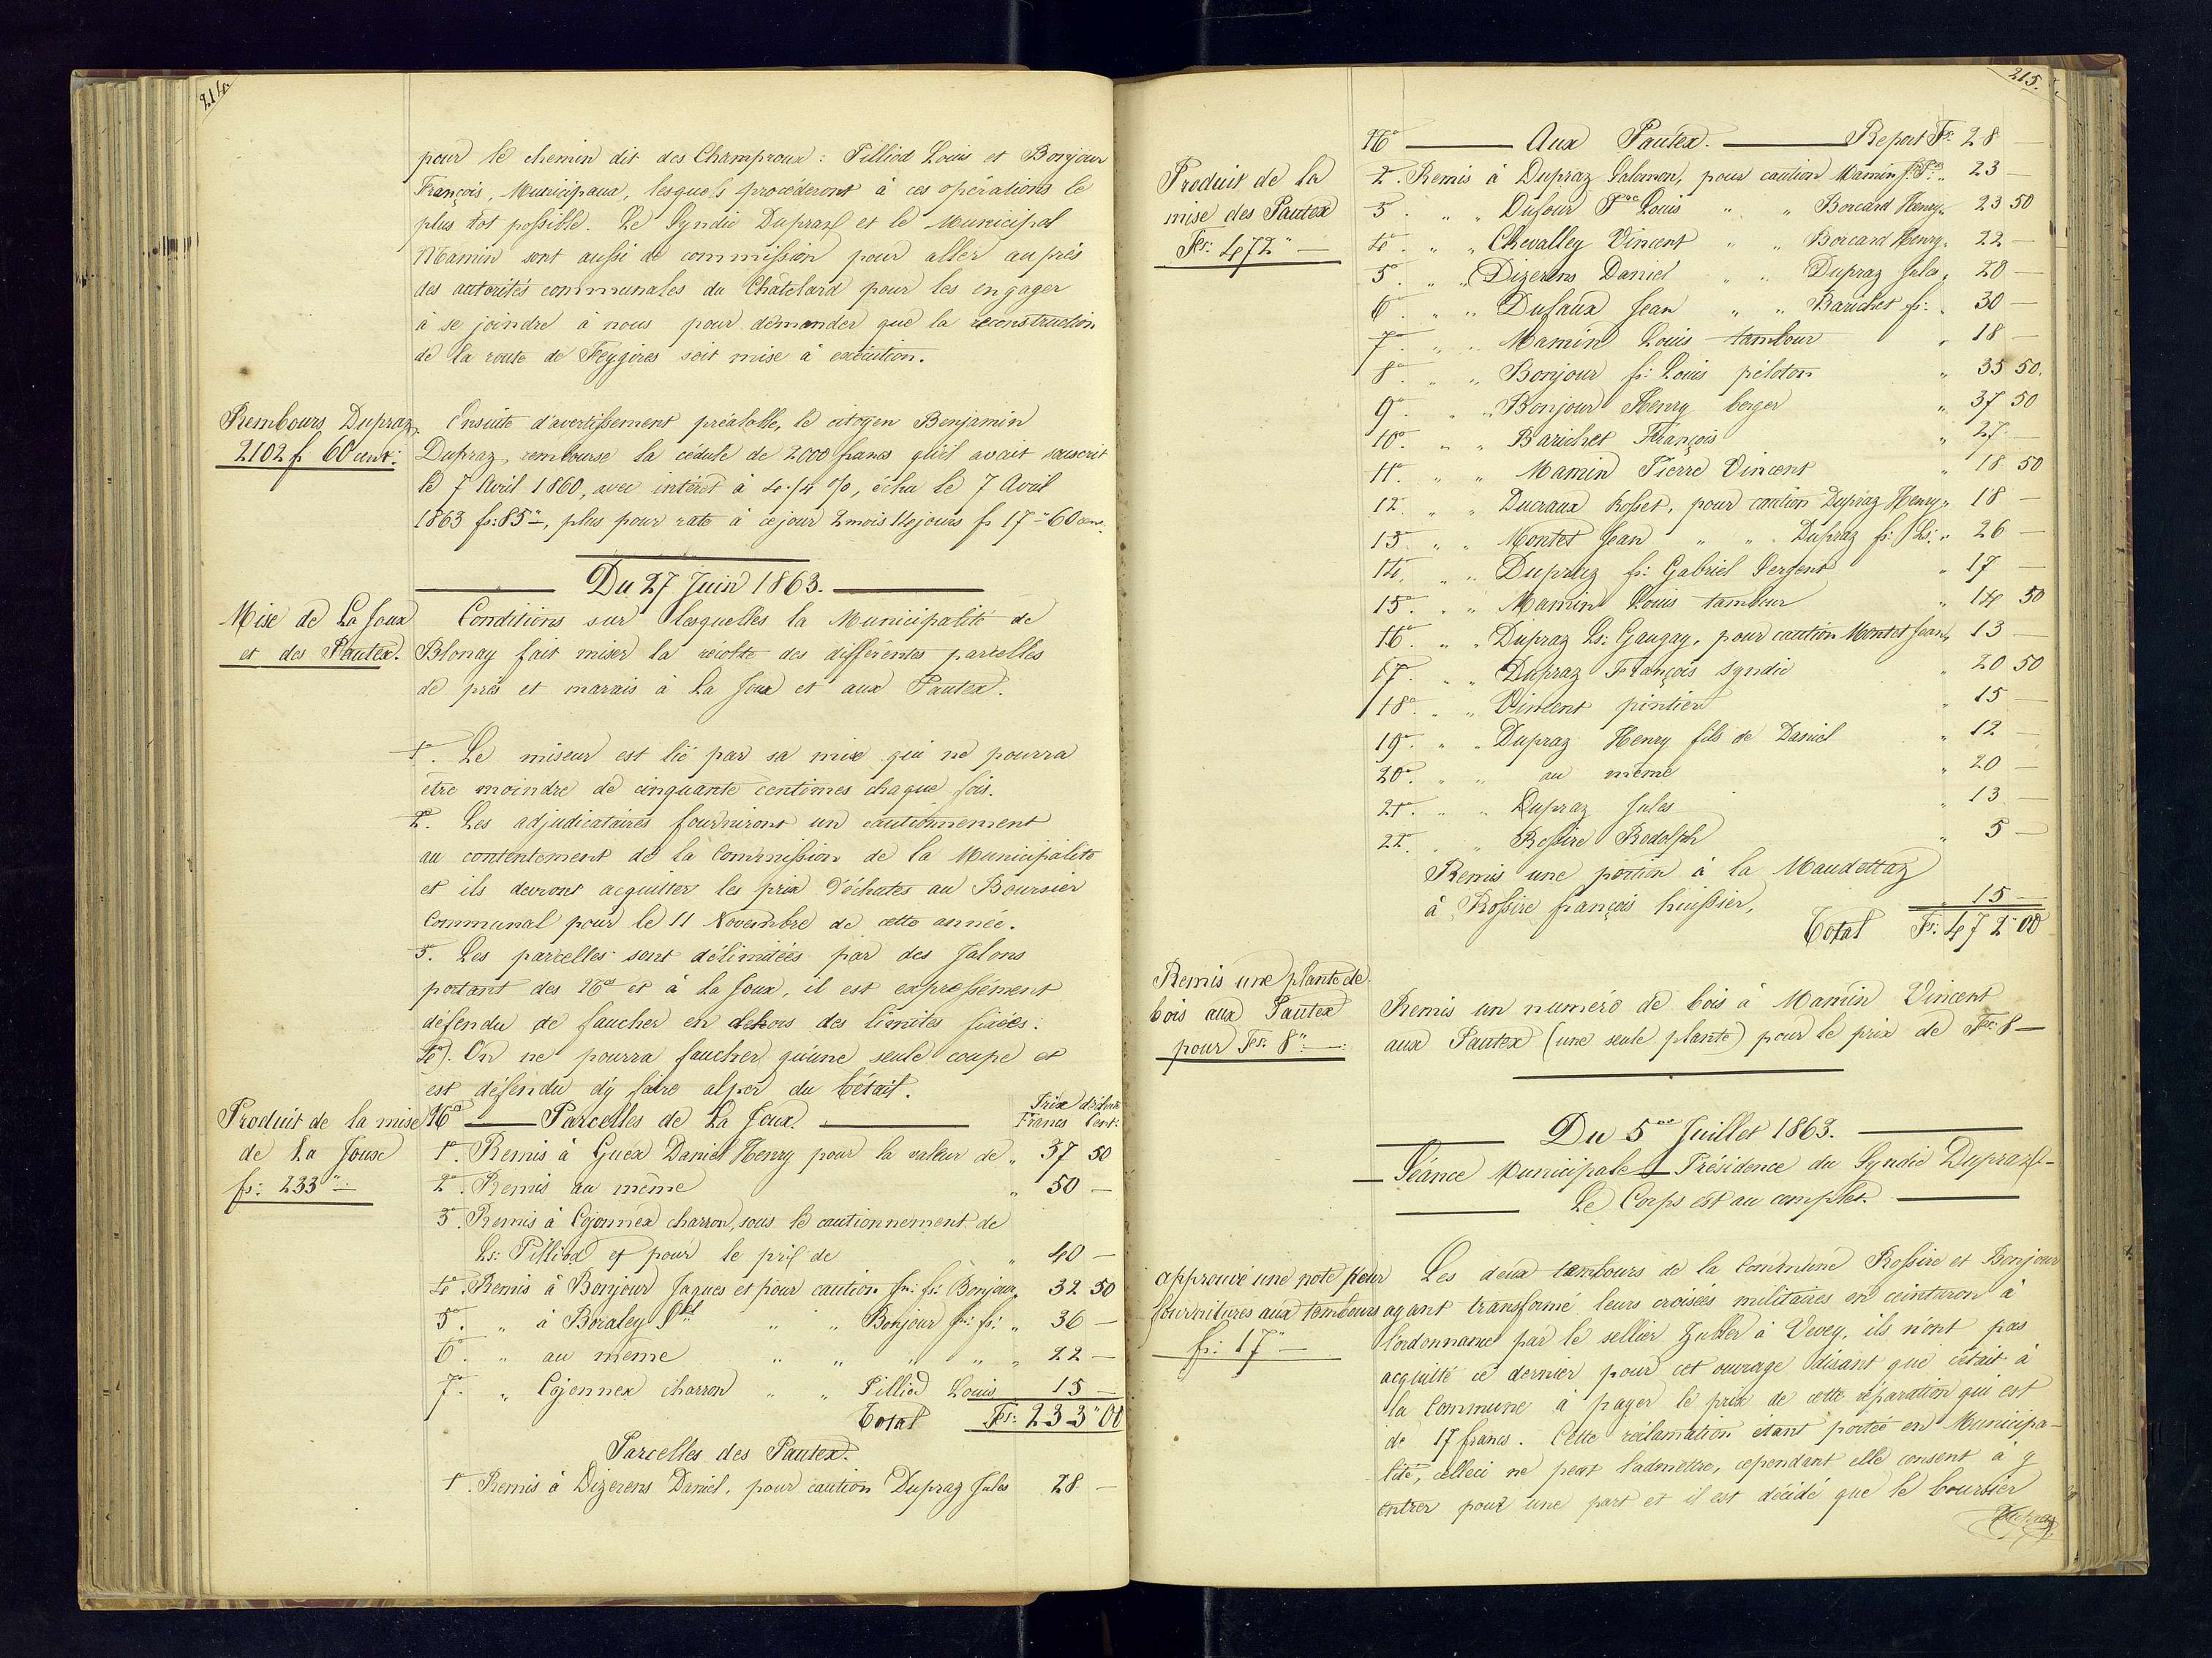 214.
pour le chemin dit des Champroux : Pilliod Louis et Bonjour
François, Municipaux, lesquels procéderont à ces opérations le
plus tot possible. Le Syndic Dupraz et le Municipal
Mamin sont aussi de commission pour aller auprès
des autorités communales du Châtelard pour les engager
à se joindre à nous pour demander que la reconstruction
de la route de Feygires soit mise à exécution.
Rembours Dupraz
2102 fr 60 cent:
Ensuite d'avertissement préalable, le citoyen Benjamin
Dupraz rembourse la cédule de 2000 francs qu'il avait souscrit
le 7 Avril 1860, avec intérêt à 4 1/4 %, échu le 7 Avril
1863 fr: 85"—, plus pour rate à ce jour 2 mois 14 jours fr 17"60 cens.
Du 27 Juin 1863.
Mise de La Joux
et des Pautex.
Conditions sur lesquelles la Municipalité de
Blonay fait miser la récolte des différentes parcelles
de prés et marais à La Joux et aux Pautex.
1°. Le miseur est lié par sa mise qui ne pourra
être moindre de cinquante centimes chaque fois.
2°. Les adjudicataires fourniront un cautionnement
au contentement de la Commission de la Municipalité
et ils devront acquitter les prix d'échutes au Boursier
Communal pour le 11 Novembre de cette année.
3°. Les parcelles sont délimitées par des Jalons
portant des N°s et à La Joux, il est expressément
défendu de faucher en dehors des limites fixées :
4°. On ne pourra faucher qu'une seule coupe et
est défendu d'y faire alper du bétail.
Produit de la mise
de La Joux
fr: 233"—
N°s Parcelles de La Joux. Prix d'échute
Francs Cent:
1°. Remis à Guex Daniel Henry pour la valeur de " 37 50
2°. Remis au même " 50 —
3°. Remis à Cojonnex charron, sous le cautionnement de
Ls: Pilliod et pour le prix de " 40 —
4°. Remis à Bonjour Jaques et pour caution Jn: fs: Bonjour " 32 50
5°. " à Boraley " " Bonjour Jn: fs: " 36 —
6°. " au même " " " " " 22 —
7°. " Cojonnex charron " " Pilliod Louis 15 —
Total Frs: 233"00
Parcelles des Pautex.
1°. Remis à Dizerens Daniel, pour caution Dupraz Jules 28 —
215.
Produit de la
mise des Pautex
Frs: 472"—
N°s Aux Pautex. Report Fr. 28 —
2°. Remis à Dupraz Salomon, pour caution Mamin " 23 —
3°. " " Dufour Louis " " Borcard Henry " 23 50
4°. " " Chevalley Vincent " " Borcard Henry " 22 —
5°. " " Dizerens Daniel " " Dupraz Jules " 20 —
6°. " " Dufaux Jean " " Barichet fs: " 30 —
7°. " " Mamin Louis tambour " 18 —
8°. " " Bonjour fs: Louis piloton " 35 50.
9°. " " Bonjour Henry berger " 37 50
10°. " " Barichet François " 27 —
11°. " " Mamin Pierre Vincent " 18 50
12°. " " Ducraux Rosset, pour caution Dupraz Henry " 18 —
13°. " " Montet Jean " " Dupraz fs: Ls: " 26 —
14. " " Dupraz fs: Gabriel Sergent " 17 —
15°. " " Mamin Louis tambour " 14 50
16°. " " Dupraz Ls: Gaugay, pour caution Montet Jean " 13 —
17°. " " Dupraz François syndic " 20 50
18°. " " Vincent pintier " 15 —
19°. " " Dupraz Henry fils de Daniel " 12 —
20°. " " au même " 20 —
21°. " " Dupraz Jules " 13 —
22°. " " Rossire Rodolph " 5 —
Remis une portion à la Maudettaz
à Rossire françois huissier, 15 —
Total Fr: 472"00
Remis une plante de
bois aux Pautex
pour Frs. 8"—
Remis un numéro de bois à Mamin Vincent
aux Pautex (une seule plante) pour le prix de Frs. 8 —
Du 5me Juillet 1863.
Séance Municipale Présidence du Syndic Dupraz
Le Corps est au complet.
approuvé une note pour
fournitures aux tambours
fr: 17"—
Les deux tambours de la Commune Rossire et Bonjour
ayant transformé leurs croisées militaires en ceinturon à
l'ordonnance par le sellier à Vevey, ils n'ont pas
acquitté ce dernier pour cet ouvrage disant que c'était à
la Commune à payer le prix de cette réparation qui est
de 17 francs. Cette réclamation étant portée en Municipa-
lité, celleci ne peut l'admettre, cependant elle consent à y
entrer pour une part et il est décidé que le boursier
Dupraz